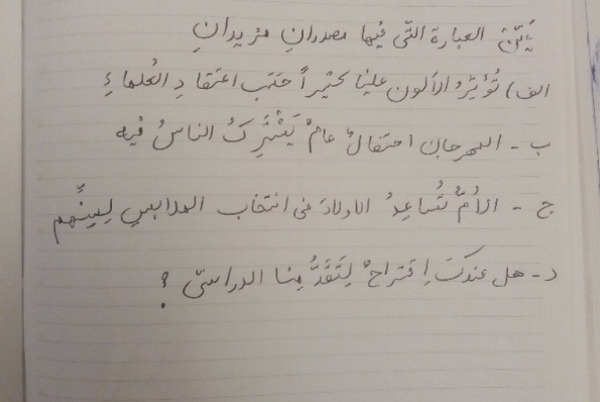 عَيِّنْ العبارة التّی فیها مصدرانِ مزیدانِ
الف) تُؤثِّرُ الألون علینا کثیراً حَسَب اعتقادِ العُلماءِ
ب - المهرجان احتفالٌ عامٌ یَشْتَرِکُ الناسُ فیه
ج - الاُمُّ تُساعِدُ الاولادَ فی انتخاب الملابسِ لِسِنِّهم
د - هل عندکَ اِقتراحٌ لِتَقَدُّمِنا الدراسیّ ؟